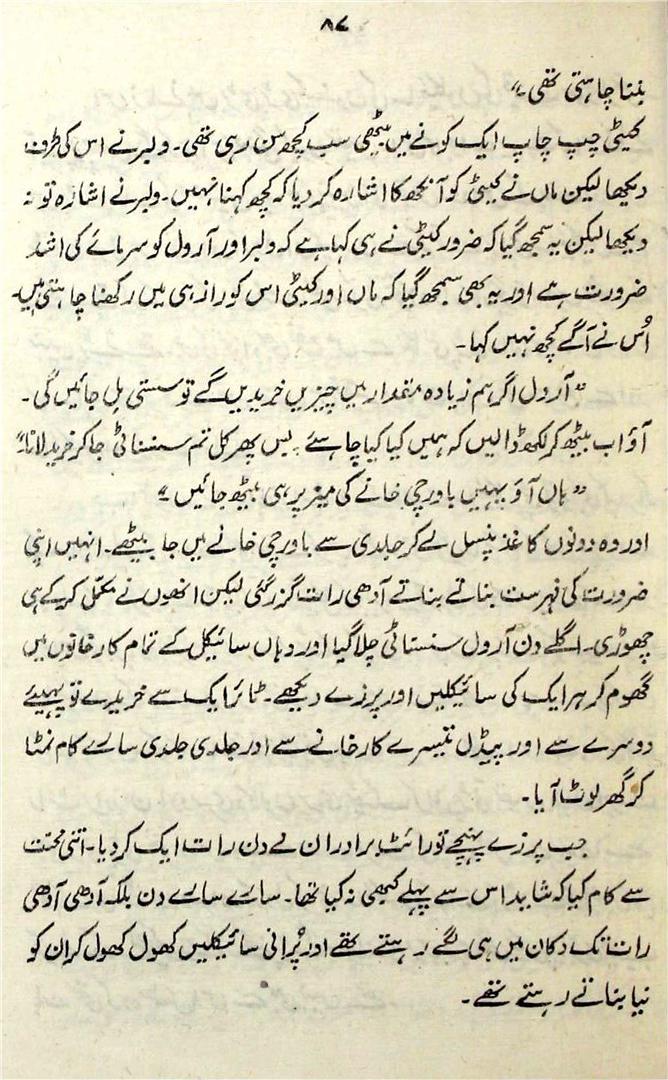 ۸۷
بننا چاہتی تھی۔"
کیٹی چپ چاپ ایک کونے میں بیٹھی سب کچھ سن رہی تھی۔ ولبر نے اس کی طرف
دیکھا لیکن ماں نے کیٹی کو آنکھ کا اشارہ کر دیا کہ کچھ کہنا نہیں۔ ولبر نے اشارہ تو نہ
دیکھا لیکن یہ سمجھ گیا کہ ضرور کیٹی نے ہی کہا ہے کہ ولبر اور آرول کو سرمائے کی اشد
ضرورت ہے اور یہ بھی سمجھ گیا کہ ماں اور کیٹی اس کو راز ہی میں رکھنا چاہتی ہیں۔
اُس نے آگے کچھ نہیں کہا۔
"آرول اگر ہم زیادہ مقدار میں چیزیں خریدیں گے تو سستی مل جائیں گی۔
آؤ اب بیٹھ کر لکھ ڈالیں کہ ہمیں کیا کیا چاہئے۔ بس پھر کل تم سنسناٹی جا کر خرید لانا"
"ہاں آؤ یہیں باورچی خانے کی میز پر ہی بیٹھ جائیں"
اور وہ دونوں کاغذ پنسل لے کر جلدی سے باورچی خانے میں جا بیٹھے۔ انہیں اپنی
ضرورت کی فہرست بناتے بناتے آدھی رات گزر گئی لیکن انھوں نے مکمل کر کے ہی
چھوڑی۔ اگلے دن آرول سنسناٹی چلا گیا اور وہاں سائیکل کے تمام کارخانوں میں
گھوم کر ہر ایک کی سائیکلیں اور پرزے دیکھے۔ ٹائر ایک سے خریدے تو پہیئے
دوسرے سے اور پیڈل تیسرے کارخانے سے اور جلدی جلدی سارے کام نمٹا
کر گھر لوٹ آیا۔
جب پرزے پہنچے تو رائٹ برادران نے دن رات ایک کر دیا۔ اتنی محنت
سے کام کیا کہ شاید اس سے پہلے کبھی نہ کیا تھا۔ سارے سارے دن بلکہ آدھی آدھی
رات تک دکان میں ہی لگے رہتے تھے اور پُرانی سائیکلیں کھول کھول کر ان کو
نیا بناتے رہتے تھے۔